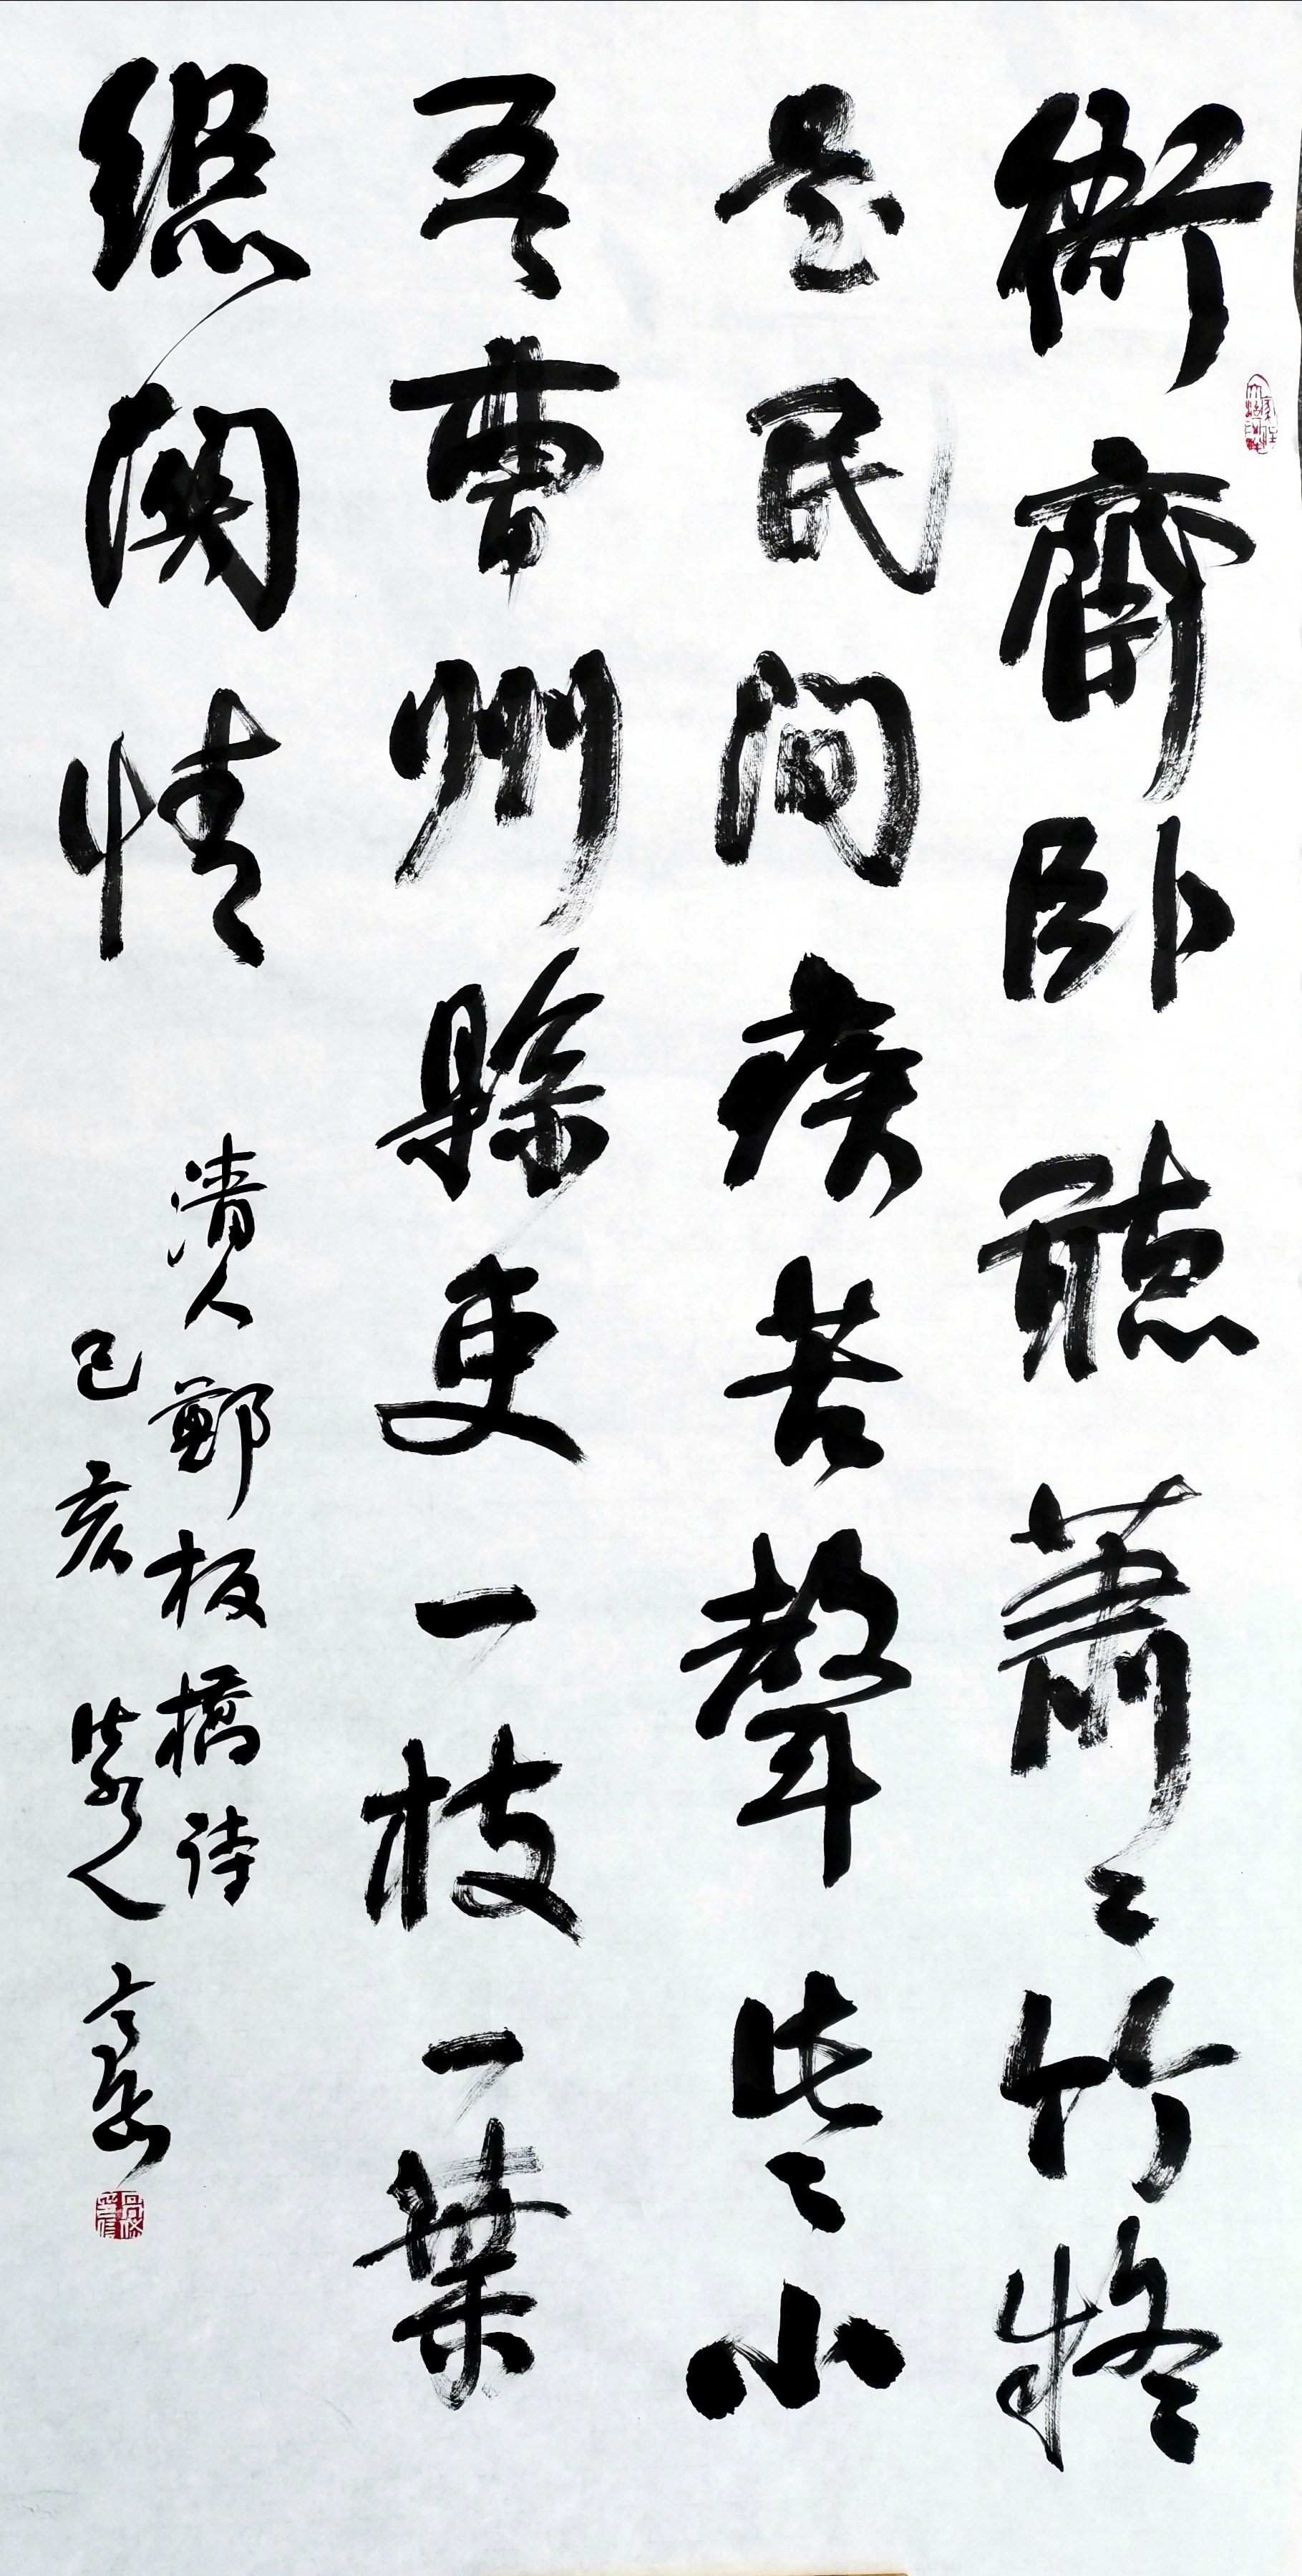 衙齋卧聽蕭〻竹疑
是民间疾苦聲些〻小
吾曹州縣吏一枝一葉
總関情
清人鄭板橋诗
己亥